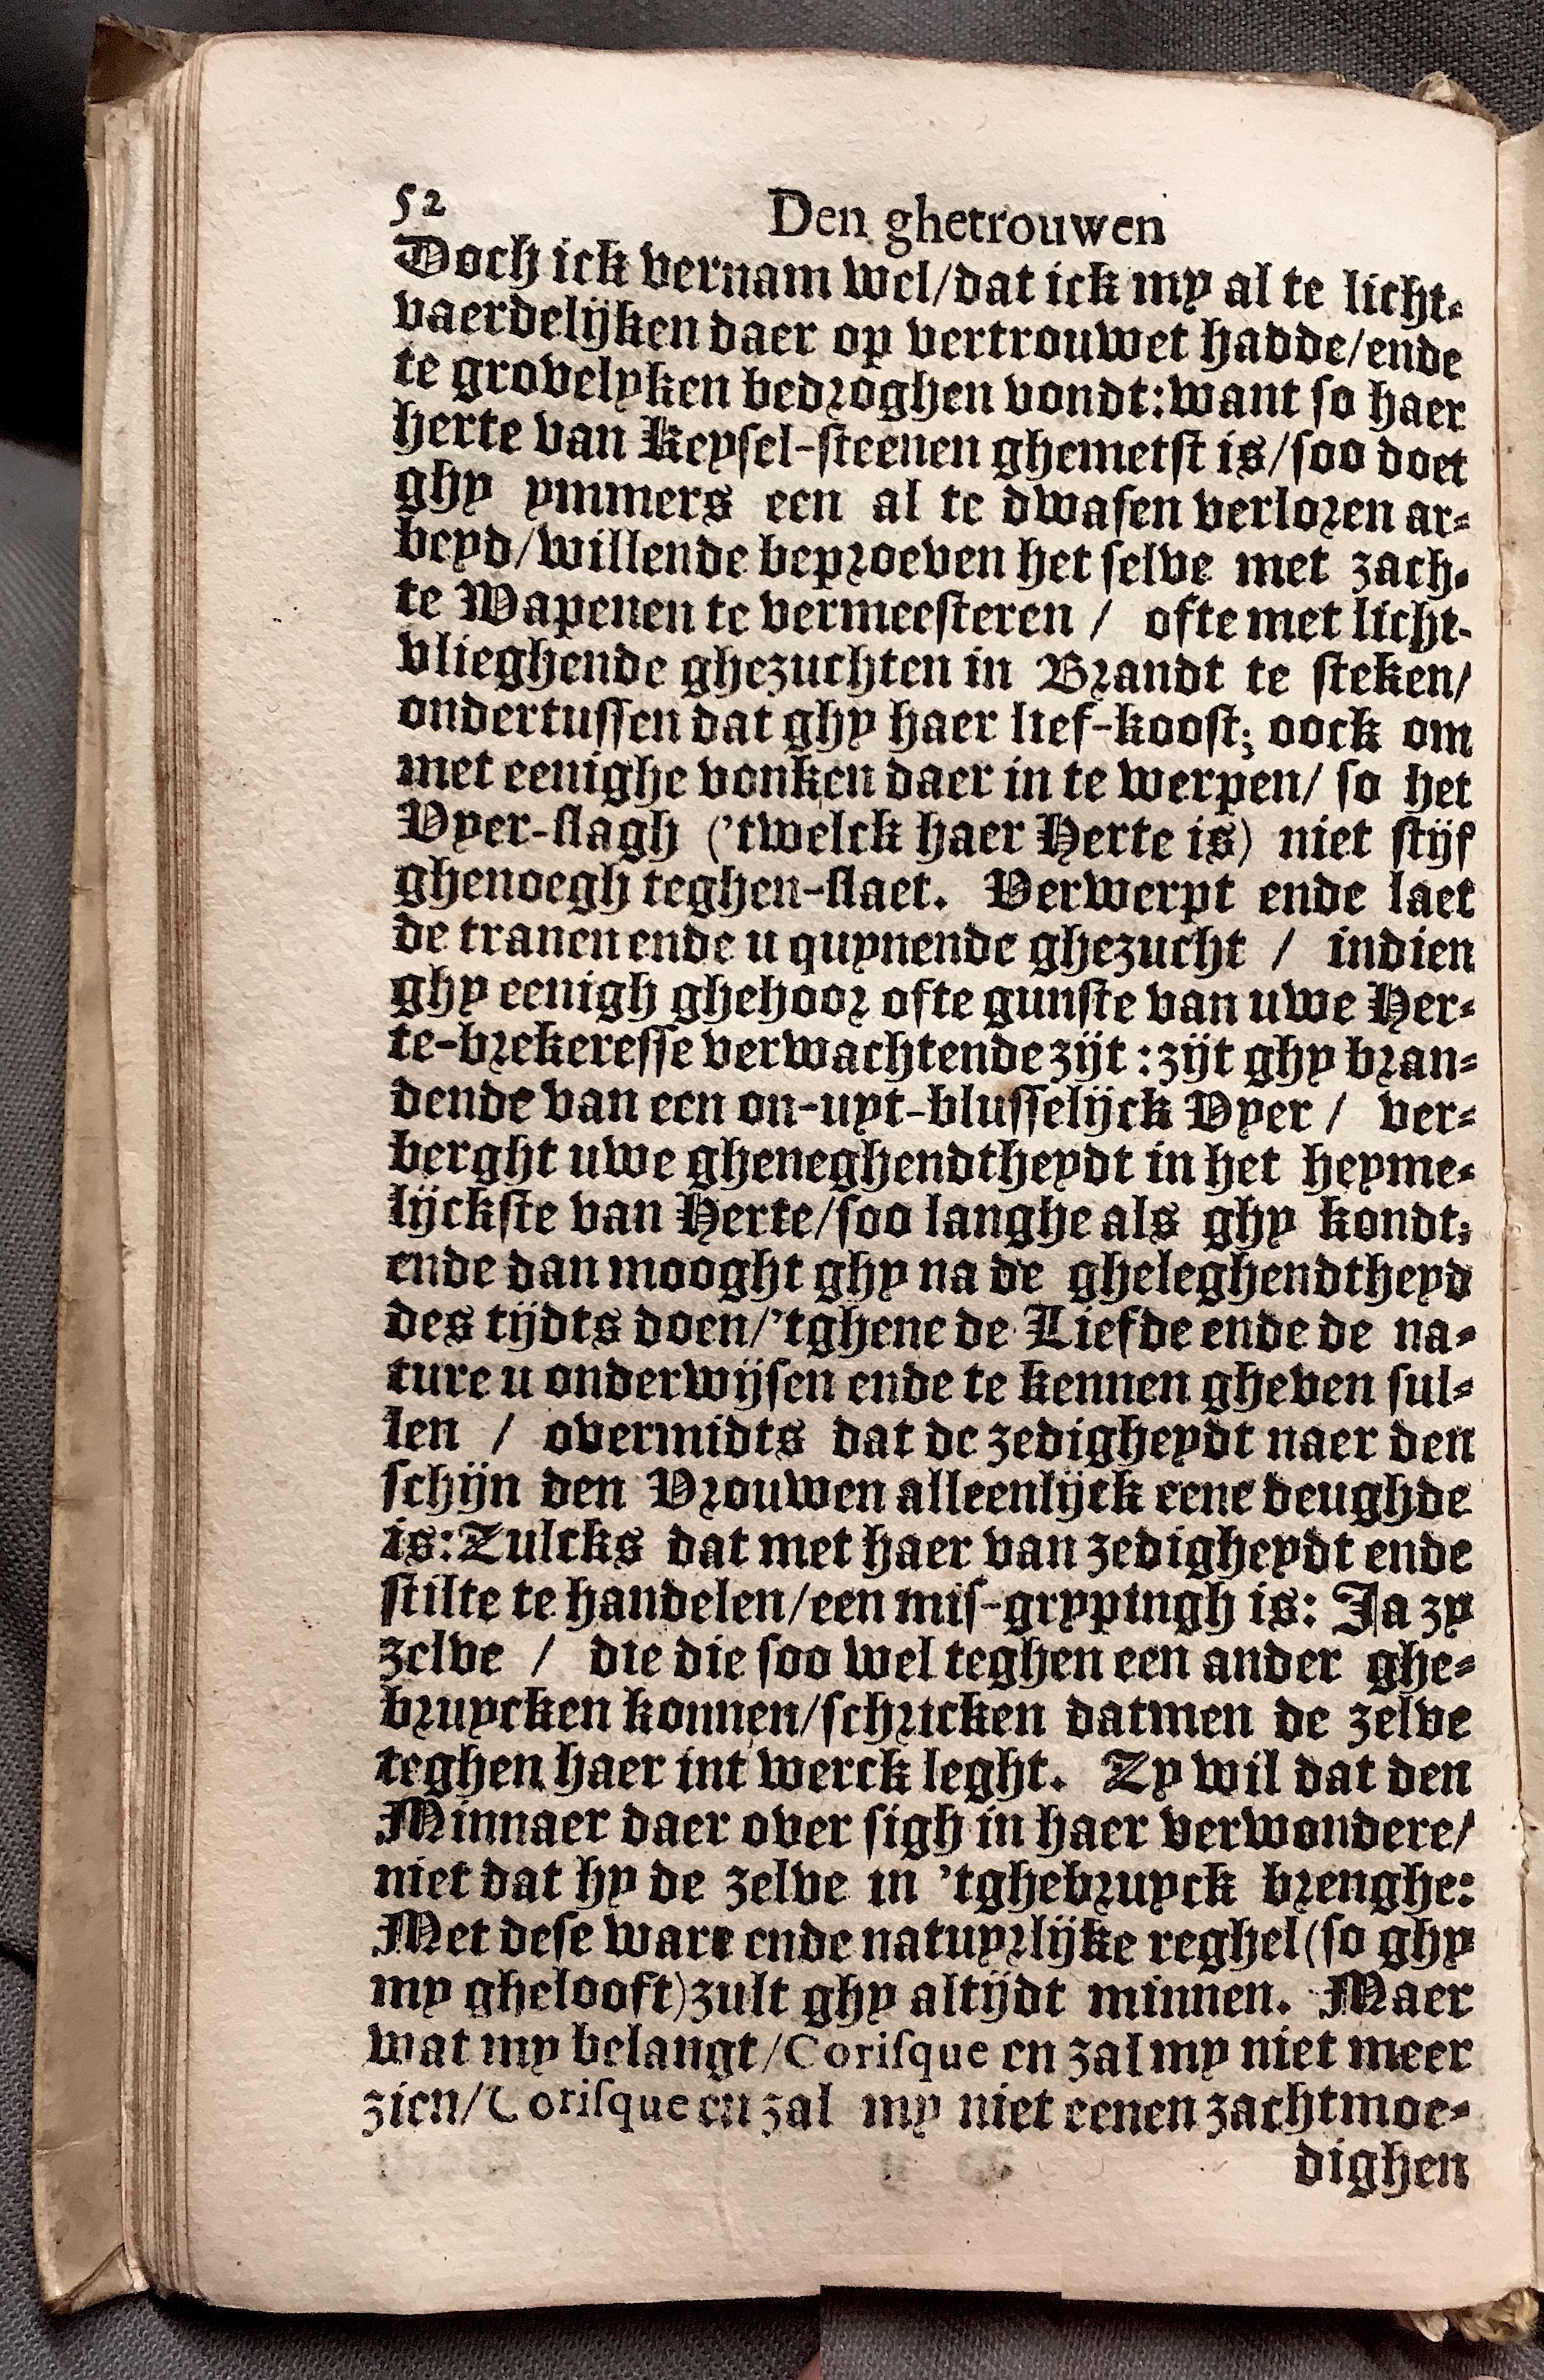 52 Den ghetrouwen
Doch ick vernam wel/dat ick my al te licht-
vaerdelijken daer op vertrouwet hadde/ende
te grovelyken bedroghen vondt:want so haer
herte van Keysel-steenen ghemetst is/soo doet
ghy ymmers een al te dwasen verloren ar-
beyd/willende beproeven het selve met zach-
te Wapenen te vermeesteren / ofte met licht-
vlieghende ghezuchten in Brandt te steken/
ondertussen dat ghy haer lief-koost; oock om
met eenighe vonken daer in te werpen/ so het
Vyer-slagh ('twelck haer Herte is) niet stijf
ghenoegh teghen-slaet. Verwerpt ende laet
de tranen ende u quynende ghezucht / indien
ghy eenigh ghehoor ofte gunste van uwe Her-
te-brekeresse verwachtende zijt :zijt ghy bran-
dende van een on-uyt-blusselijck Vyer / ver-
berght uwe gheneghendtheydt in het heyme-
lijckste van Herte/soo langhe als ghy kondt;
ende dan mooght ghy na de gheleghendtheyd
des tijdts doen/'tghene de Liefde ende de na-
ture u onderwijsen ende te kennen gheven sul-
len / overmidts dat de zedigheydt naer den
schijn den Vrouwen alleenlijck eene deughde
is:Zulcks dat met haer van zedigheydt ende
stilte te handelen/een mis-grypingh is: Ja zy
zelve / die die soo wel teghen een ander ghe-
bruycken konnen/schricken datmen de zelve
teghen haer int werck leght. Zy wil dat den
Minnaer daer over sigh in haer verwondere/
niet dat hy de zelve in 'tghebruyck brenghe:
Met dese ware ende natuyrlijke reghel(so ghy
my ghelooft)zult ghy altijdt minnen. Maer
wat my belangt/Corisque en zal my niet meer
zien/Corisque en zal my niet eenen zachtmoe-
dighen